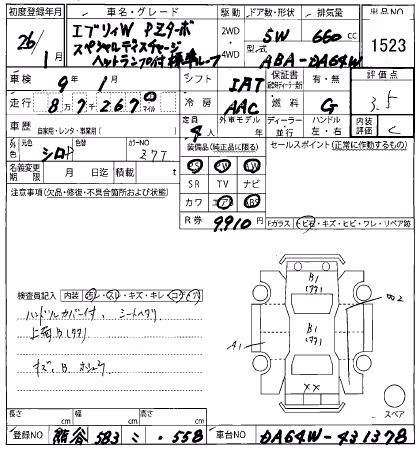 初度登録年月
車名・グレード
駆動
ドア数・形状
排気量
出品NO
26/1月
エブリィW PZターボ
スペシャル ディスチャージ
ヘットランプ付 標準ルーフ
2WD
・
4WD
5W
660 cc
型式
ABA-DA64W
1523
車検
9年1月
シフト
IAT
保証書
有・無
評価点
走行
87267
マイル
冷房
AAC
燃料
G
3.5
車歴
自家用・レンタ・事業用( )
定員
4人
外車モデル
年
ディーラー
・
並行
ハンドル
左・右
内装
評価
C
外色
元色
シロ
色替
カラーNO
27T
装備品(純正品に限る)
セールスポイント(正常に作動するもの)
名義変更
期限
月 日
積載
t
PS PW AW
SR TV ナビ
カワ エアB ABS
注意事項(欠品・修復・不具合箇所および状態)
R券
9,910円
Fガラス
トビ石・キズ・ヒビ・ワレ・リペア跡
検査員記入
内装
汚レ・スレ・キズ・キレ・コゲ・穴
ハンドルカバー付、シートヘタリ
キズ、B、
B1
(77)
B1
(77)
A1
××
スペア
長さ cm
幅 cm
高さ cm
登録NO
熊谷 583 ニ ・558
車台NO
DA64W-431378